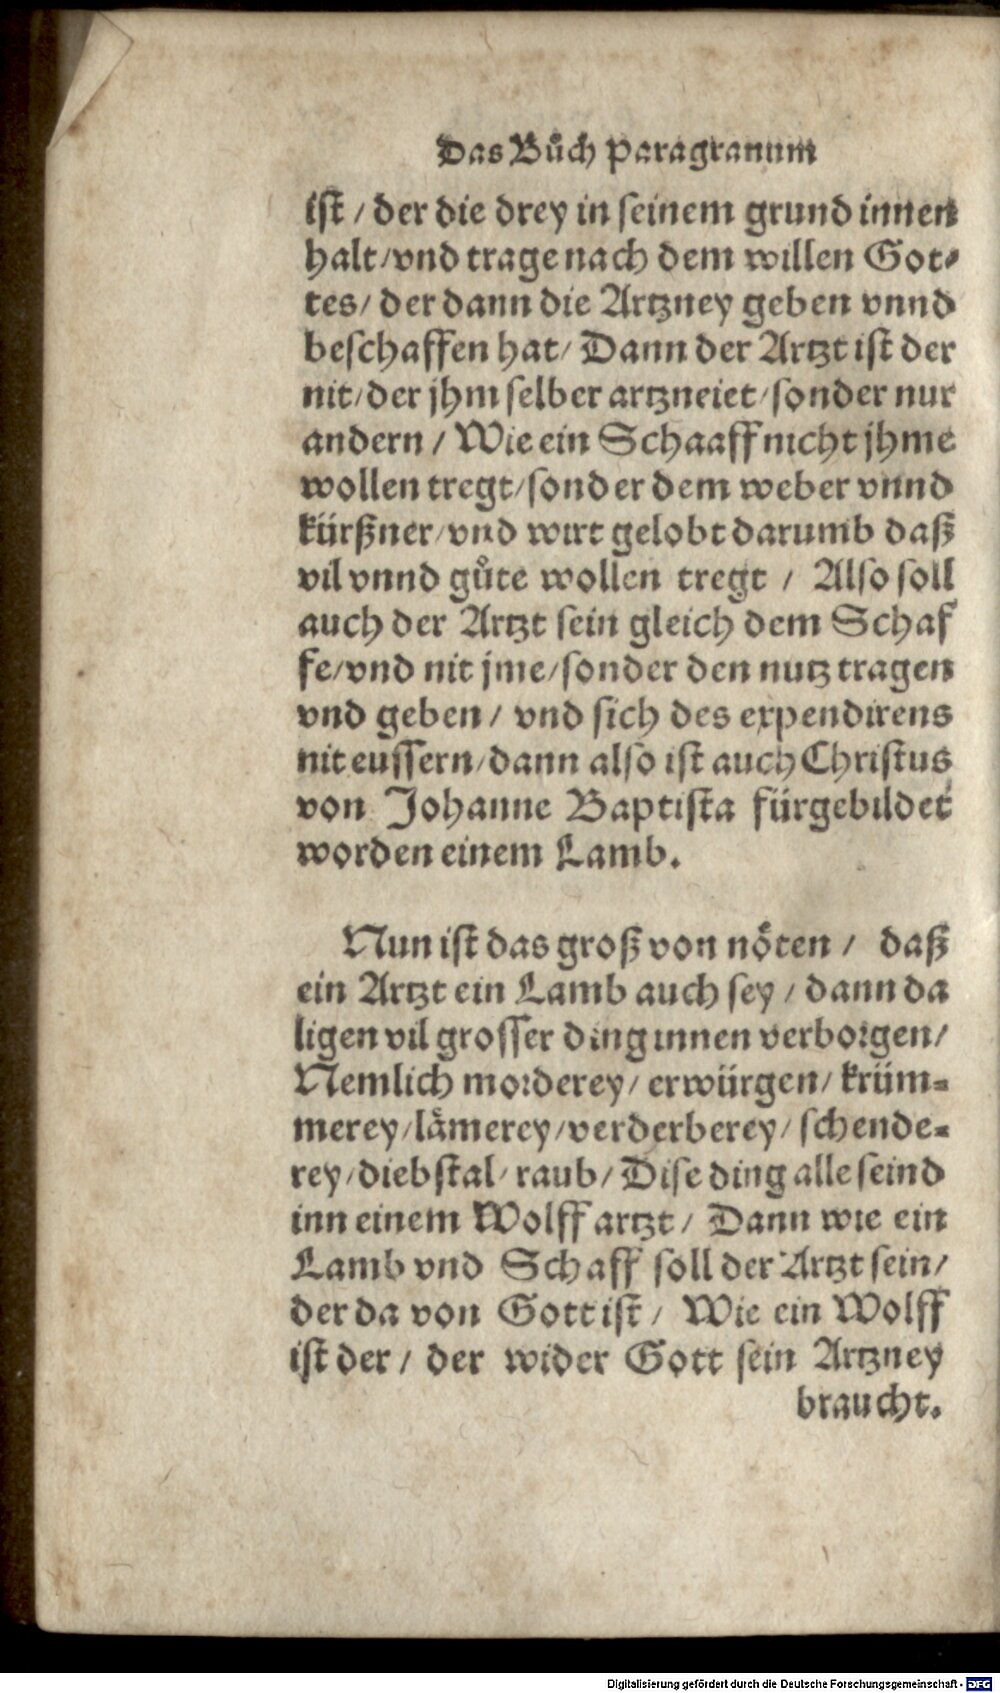 Das Bůch Paragranum
ist / der die drey in seinem grund innen
halt / vnd trage nach dem willen Got⸗
tes / der dann die Artzney geben vnnd
beschaffen hat / Dann der Artzt ist der
nit / der jhm selber artzneiet / sonder nur
andern / Wie ein Schaaff nicht jhme
wollen tregt / sonder dem weber vnnd
kürßner / vnd wirt gelobt darumb daß
vil vnnd gůte wollen tregt / Also soll
auch der Artzt sein gleich dem Schaf
fe / vnd nit jme / sonder den nutz tragen
vnd geben / vnd sich des expendirens
nit eussern / dann also ist auch Christus
von Johanne Baptista fürgebildet
worden einem Lamb.
Nun ist das groß von nöten / daß
ein Artzt ein Lamb auch sey / dann da
ligen vil grosser ding innen verborgen /
Nemlich morderey / erwürgen / krüm⸗
merey / lämerey / verderberey / schende⸗
rey / diebstal / raub / Dise ding alle seind
inn einem Wolff artzt / Dann wie ein
Lamb vnd Schaff soll der Artzt sein /
der da von Gott ist / Wie ein Wolff
ist der / der wider Gott sein Artzney
braucht.
Digitalisierung gefördert durch die Deutsche Forschungsgemeinschaft - DFG